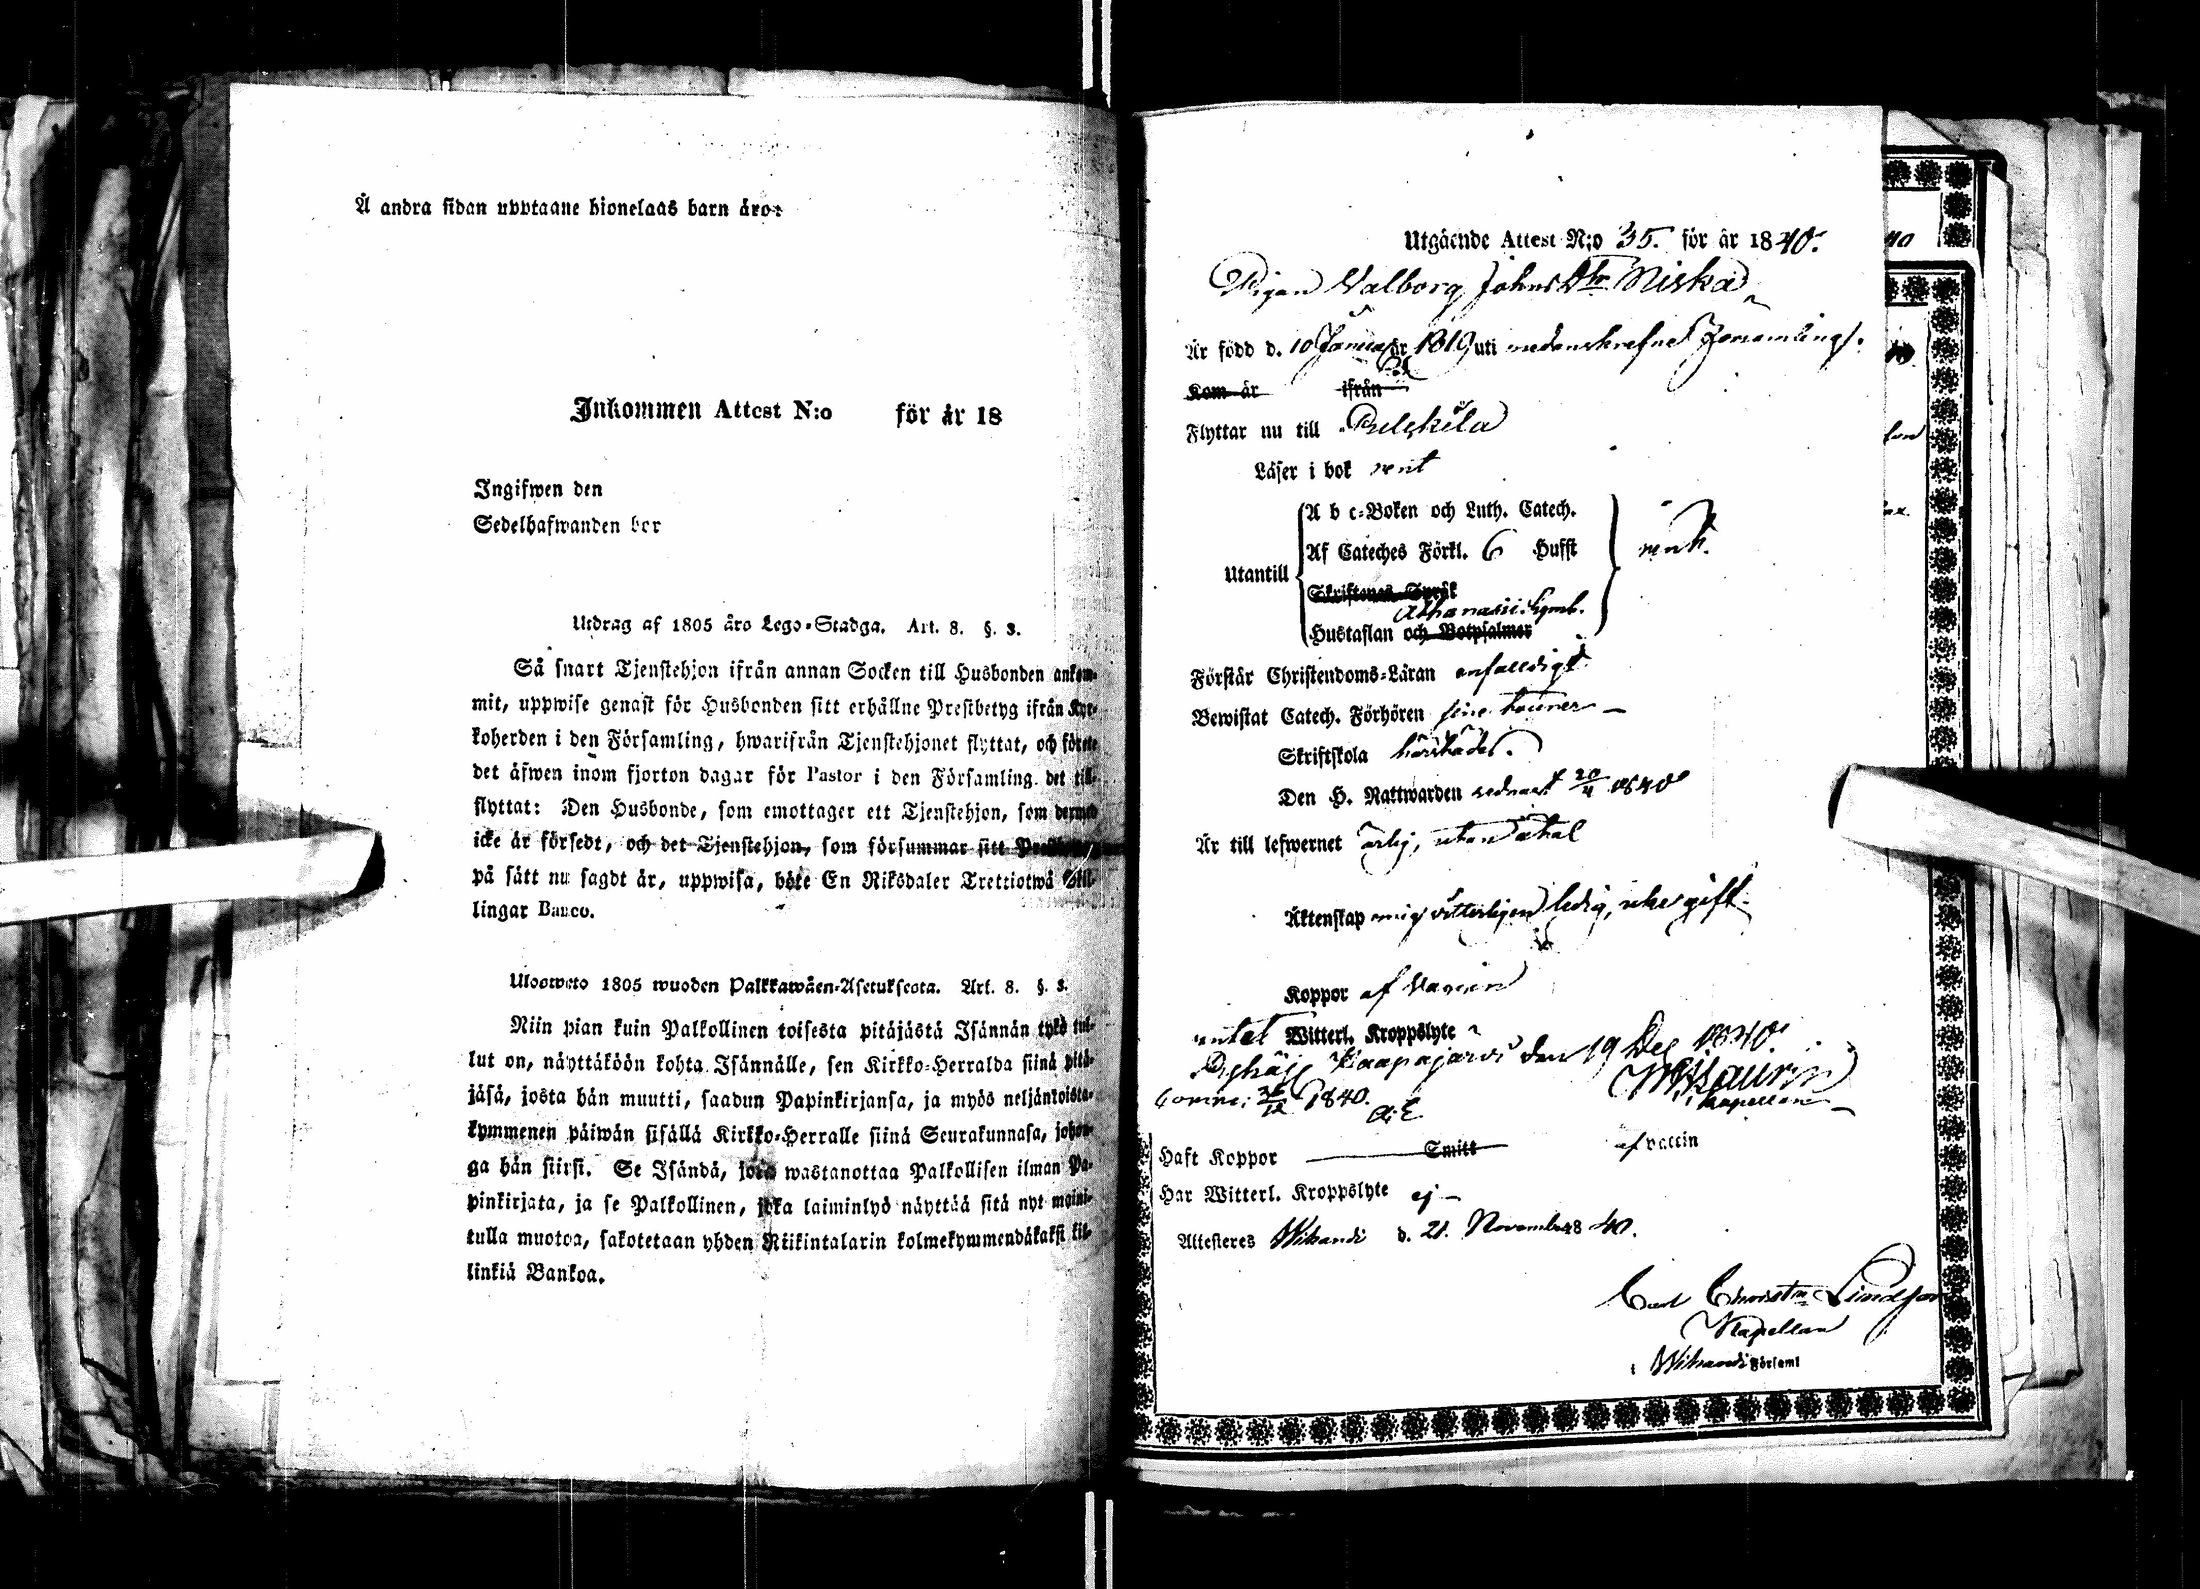 Å andra sidan upptagne hionelags barn äro:
Inkommen Attest N:o för år 18
Ingifwen den
Sedelhafwanden bor
Utdrag af 1805 års Lego-Stadga. Art. 8. §. 3.
Så snart Tjenstehjon ifrån annan Socken till Husbonden ankom-
mit, uppwise genast för Husbonden sitt erhållne Prestbetyg ifrån Kyr-
koherden i den Församling, hwarifrån Tjenstehjonet flyttat, och förete
det äfwen inom fjorton dagar för Pastor i den Församling det till-
flyttat: Den Husbonde, som emottager ett Tjenstehjon, som dermed
icke är försedt, och det Tjenstehjon, som försummar sitt
på sätt nu sagdt är, uppwisa, böte En Riksdaler Trettiotwå Skil-
lingar Banco.
Uloswето 1805 wuoden Palkkawäen-Asetuksesta. Art. 8. §. 3.
Niin pian kuin Palkollinen toisesta pitäjästä Isännän tykö tul-
lut on, näyttäköön kohta Isännälle, sen Kirkko-Herralda siinä pitä-
jäsä, josta hän muutti, saadun Papinkirjansa, ja myös neljäntoista-
kymmenen päiwän sisällä Kirkko-Herralle siinä Seurakunnasa, johon-
ga hän siirsi. Se Isändä, joka wastanottaa Palkollisen ilman Pa-
pinkirjata, ja se Palkollinen, joka laiminlyö näyttää sitä nyt maini-
tulla muotoa, sakotetaan yhden Riikintalarin kolmekymmendäkaksi kil-
linkiä Bankoa.
Utgående Attest N:o 35. för år 1840.
Pigan Valborg Johns Dtr Niska,
Är född d. 10 Januari år 1819 uti nedanskrefne Församling.
Kom år ifrån
Flyttar nu till Pelskëla
Läser i bok rent
A b c-Boken och Luth. Catech.
Af Cateches Förkl. 6 Hufst rent.
Utantill
Skriftenes Språk
Athanasii Symb.
Hustaflan och Botpsalmer
Förstår Christendoms-Läran enfaldigt
Bewistat Catech. Förhören sine
Skriftskola härstädes.
Den H. Nattwarden sednast 20/4 1840
Är till lefwernet ärlig, utan åtal
Äktenskap mig vitterligen ledig, icke gift.
Koppor af Vaccin
intet Witterl. Kroppslyte
den 19 Dec 1840
1840.
Kapellan
Haft Koppor Smitt af vaccin
Har Witterl. Kroppslyte ej
Attesteres Wihandi d. 21. November 1840.
Carl Christn
Kapellan
i Wihandi Församl